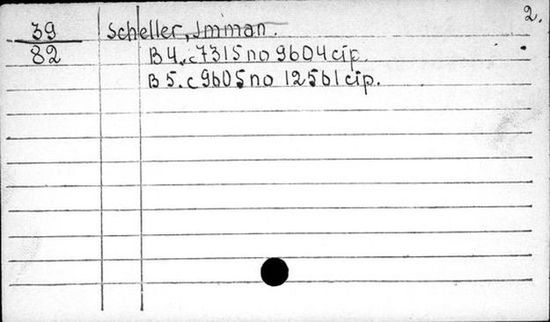 2.
39 Scheller, Imman.
82 B 4. c7315 no 9604 cip.
B 5. c 9605 no 12561 cip.